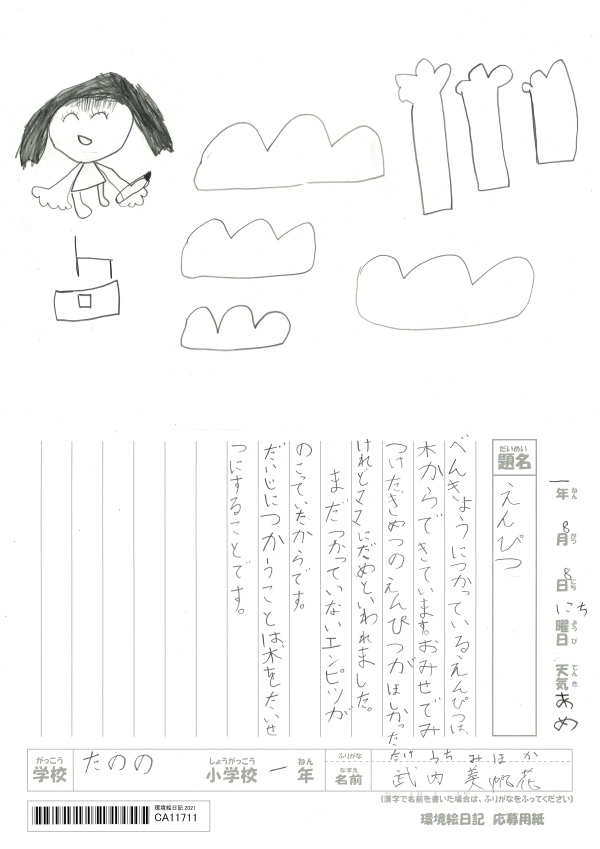 一年ねん 8月がつ 8日にち にち曜日ようび 天気てんき あめ
題名だいめい えんぴつ
べんきょうにつかっているえんぴつは、
木からできています。おみせでみ
つけたきめつのえんぴつがほしかった
けれどママにだめといわれました。
まだつかっていないエンピツが
のこっていたからです。
だいじにつかうことは、木をたいせ
つにすることです。
がっこう
学校 たのの しょうがっこう小学校 一 ねん年
ふりがな たけ うち み ほ か
なまえ名前 武内 美帆花
(漢字で名前を書いた場合は、ふりがなをふってください)
環境絵日記 2021
CA11711
環境絵日記 応募用紙